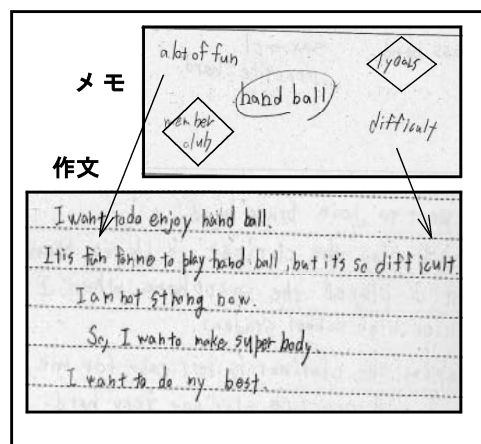 メモ
a lot of fun
hand ball
member
club
difficult
作文
I want todo enjoy hand ball.
It is fun for me to play hand ball, but it's so difficult.
I am not strong now.
So, I wanto make super body.
I want to do my best.